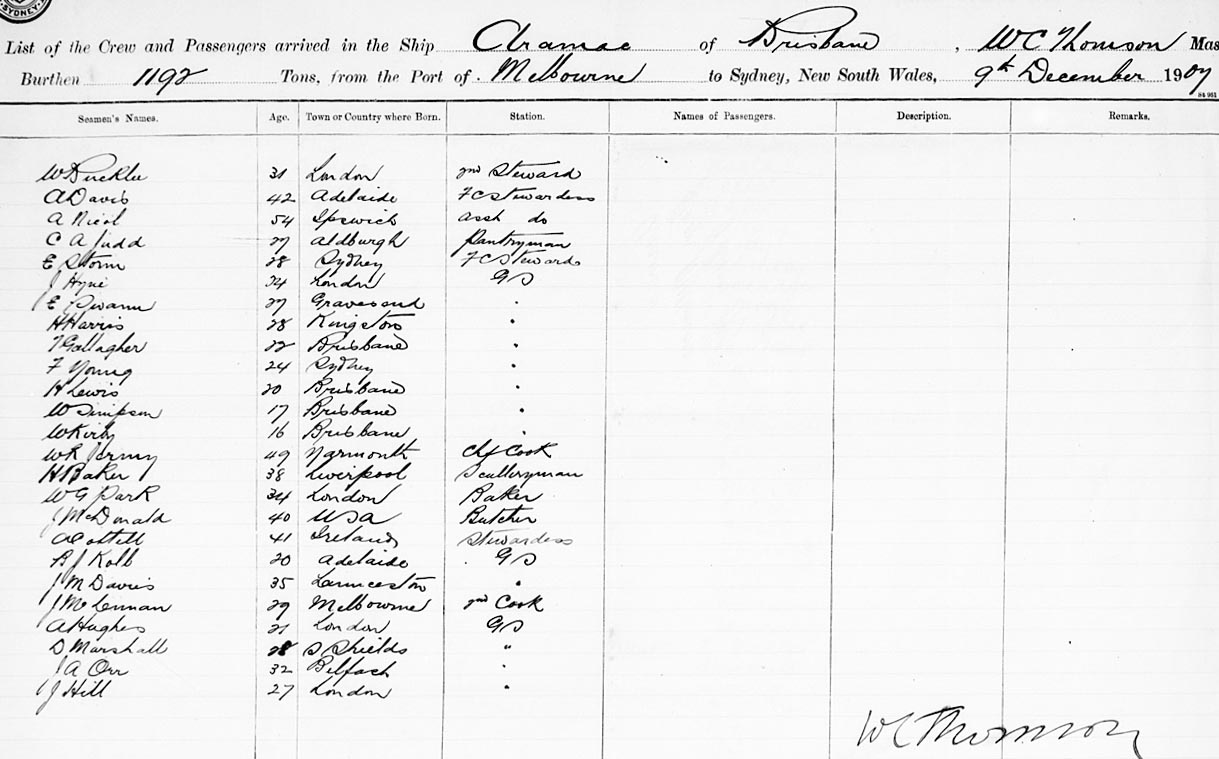 SYDNEY
List of the Crew and Passengers arrived in the Ship Aramac of Brisbane, W C Thomson Mas
Burthen 1192 Tons, from the Port of Melbourne to Sydney, New South Wales, 9th December 1907
Seamen's Names. Age. Town or Country where Born. Station. Names of Passengers. Description. Remarks.
W 31 London 2nd Steward
A Davis 42 Adelaide F C Stewardess
A Nicol 54 Ipswich asst do
C A Judd 27 Aldburgh Pantryman
E Storm 28 Sydney F C Steward
J Hyne 24 London G S
E Swann 27 Gravesend "
H Harris 28 Kingston "
T Gallagher 22 Brisbane "
F Young 24 Sydney "
H Lewis 20 Brisbane "
W Simpson 17 Brisbane "
W Kirby 16 Brisbane "
W R Jermy 49 Yarmouth Chf Cook
H Baker 38 Liverpool Sculleryman
W G Park 34 London Baker
J McDonald 40 USA Butcher
A Cottell 41 Ireland Stewardess
B J Kolb 20 Adelaide G S
J M Davis 35 Launceston "
J McLennan 29 Melbourne 2nd Cook
A Hughes 21 London G S
D Marshall 28 S Shields "
J A Orr 32 Belfast "
J Hill 27 London "
W C Thomson